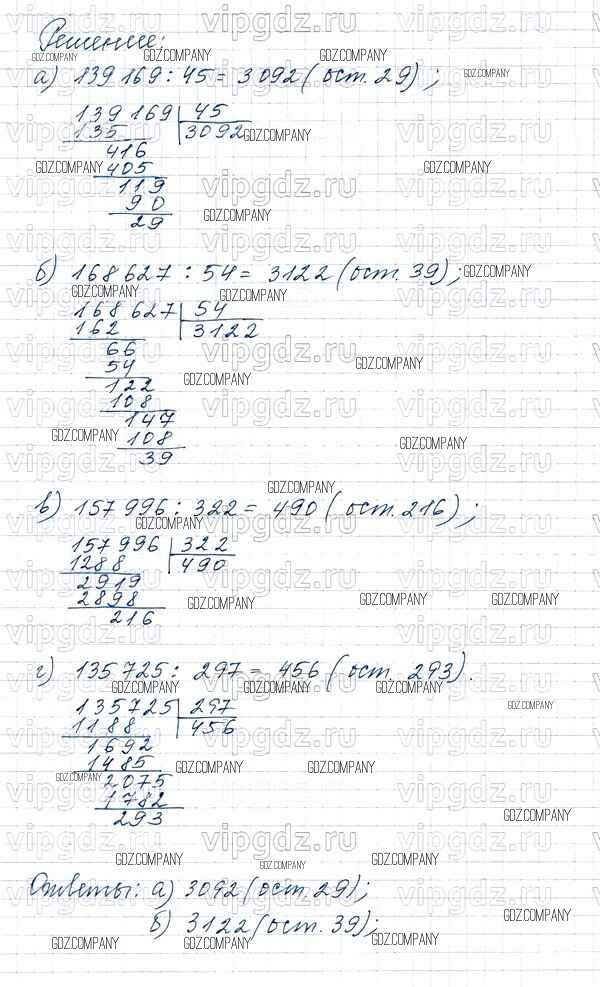 Решение:
а) 139 169 : 45 = 3092 (ост. 29);
139 169 | 45
135 | 3092
416
405
119
90
29
б) 168 627 : 54 = 3122 (ост. 39);
168 627 | 54
162 | 3122
66
54
122
108
147
108
39
в) 157 996 : 322 = 490 (ост. 216);
157 996 | 322
1288 | 490
2919
2898
216
г) 135 725 : 297 = 456 (ост. 293).
135725 | 297
1188 | 456
1692
1485
2075
1782
293
Ответы: а) 3092 (ост. 29);
б) 3122 (ост. 39);
vipgdz.ru
GDZ.COMPANY